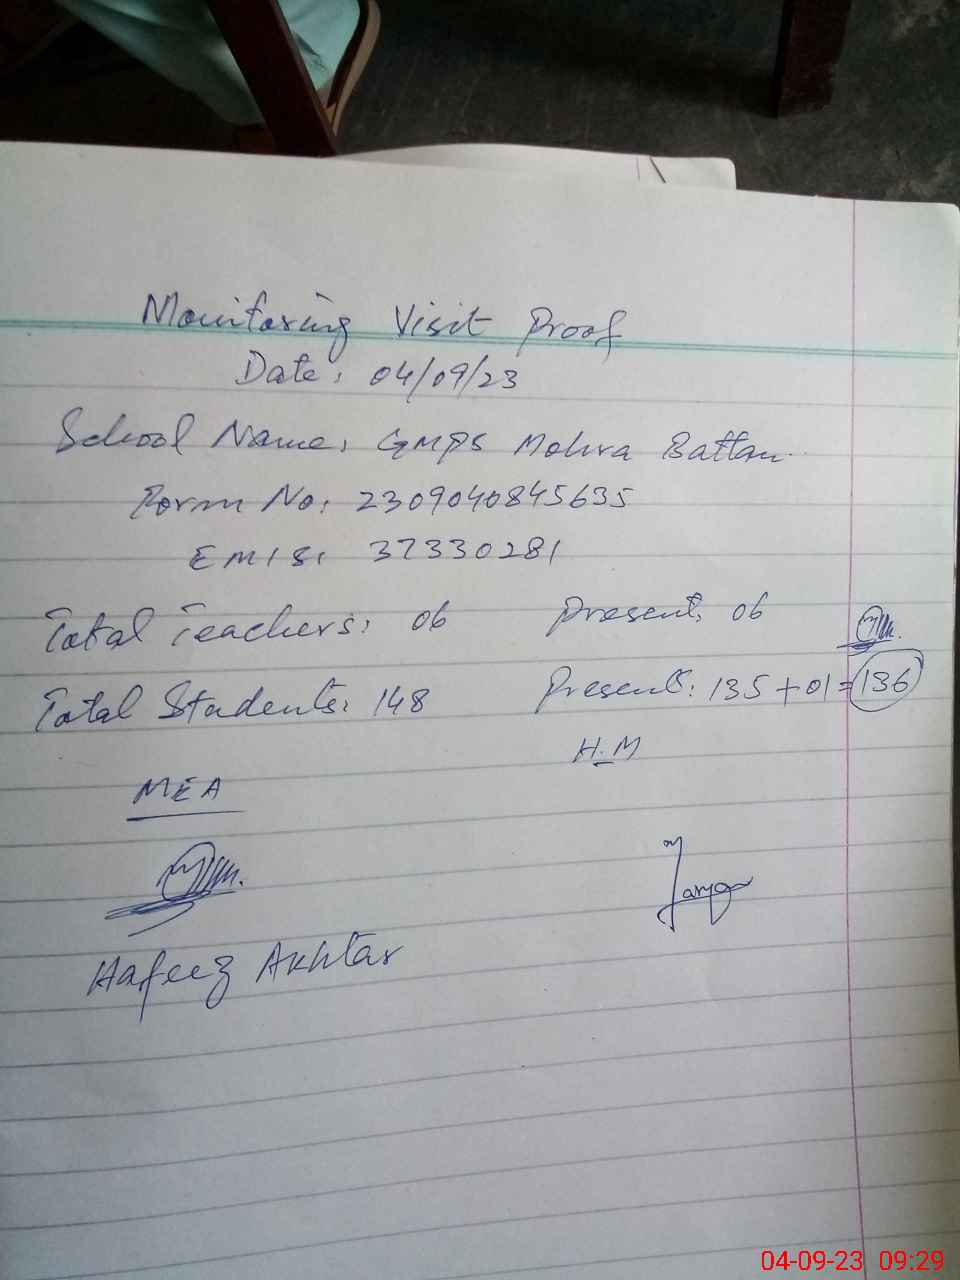 Monitoring Visit Proof
Date: 04/09/23
School Name: GMPS Mohra Battan
Form No: 2309040845635
EMIS: 37330281
Total Teachers: 06 Present: 06
Total Students: 148 Present: 135 + 01 = 136
H.M
MEA
Hafeez Akhtar
04-09-23 09:29